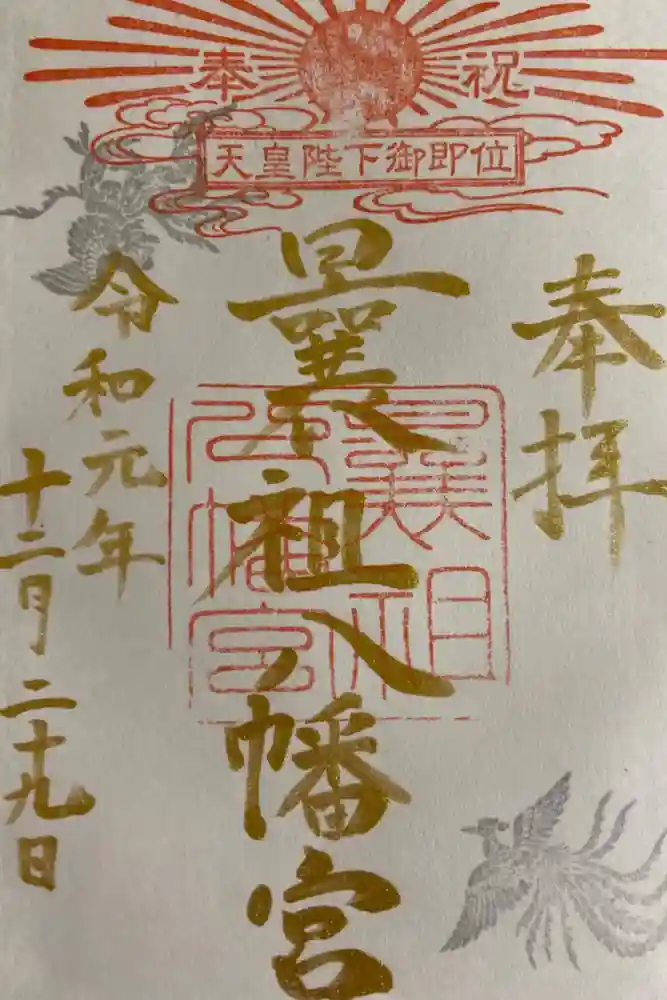 奉祝
天皇陛下御即位
奉拝
曩祖八幡宮
曩祖
八幡宮
令和元年
十二月二十九日